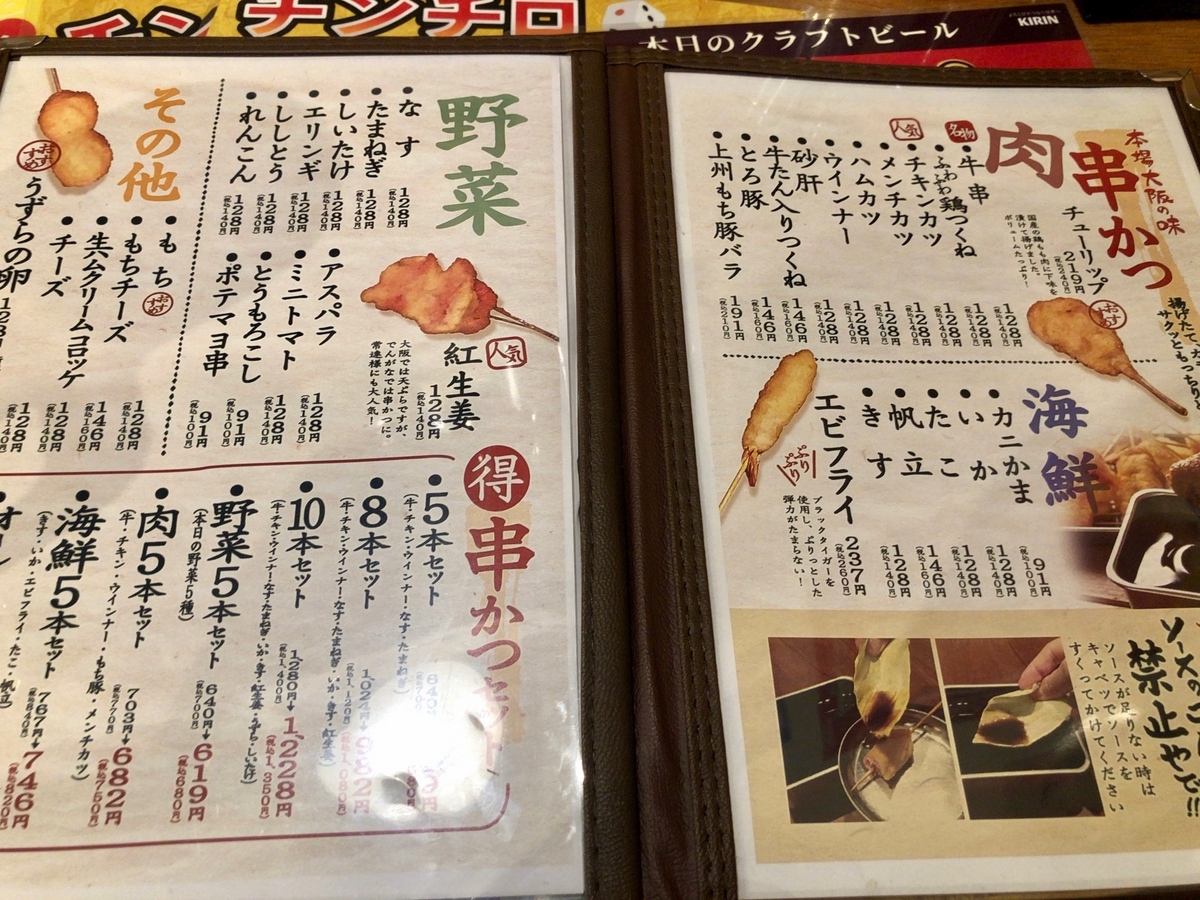 チンチロ
本日のクラフトビール
KIRIN
本場大阪の味
串かつ
チューリップ
219円
(税込240円)
国産の鶏もも肉に下味を
漬けて揚げました。
ボリュームたっぷり!
おすすめ
肉
名物
人気
・牛串
128円
(税込140円)
・ふわふわ鶏つくね
128円
(税込140円)
・チキンカツ
128円
(税込140円)
・メンチカツ
128円
(税込140円)
・ハムカツ
128円
(税込140円)
・ウインナー
128円
(税込140円)
・砂肝
128円
(税込140円)
・牛たん入りつくね
146円
(税込160円)
・とろ豚
146円
(税込160円)
・上州もち豚バラ
191円
(税込210円)
海鮮
・カニかま
91円
(税込100円)
・いか
128円
(税込140円)
・たこ
128円
(税込140円)
・帆立
146円
(税込160円)
・きす
128円
(税込140円)
エビフライ
237円
(税込260円)
ぷりぷり
ブラックタイガーを
使用し、ぷりっとした
弾力がたまらない!
禁止やで!!
ソースが足りない時は
キャベツでソースを
すくってかけてください
野菜
・なす
128円
(税込140円)
・たまねぎ
128円
(税込140円)
・しいたけ
128円
(税込140円)
・エリンギ
128円
(税込140円)
・ししとう
128円
(税込140円)
・れんこん
128円
(税込140円)
・アスパラ
128円
(税込140円)
・ミニトマト
128円
(税込140円)
・とうもろこし
91円
(税込100円)
・ポテマヨ串
91円
(税込100円)
人気
紅生姜
128円
(税込140円)
大阪では天ぷらですが、
でんがなでは串かつに。
常連様にも大人気!
その他
・もち
おすすめ
128円
(税込140円)
・もちチーズ
146円
(税込160円)
・生ハムクリームコロッケ
128円
(税込140円)
・チーズ
128円
(税込140円)
おすすめ
うずらの卵
得
串かつセット
・5本セット
(牛・チキン・ウインナー・なす・たまねぎ)
・8本セット
(牛・チキン・ウインナー・なす・たまねぎ・いか・きす・紅生姜)
・10本セット
(牛・チキン・ウインナー・なす・たまねぎ・いか・きす・紅生姜・うずら・しいたけ)
1,280円→1,228円
(税込1,400円)
(税込1,350円)
・野菜5本セット
(本日の野菜5種)
640円→619円
(税込700円)
(税込680円)
・肉5本セット
(牛・チキン・ウインナー・もち豚・メンチカツ)
703円→682円
(税込770円)
(税込750円)
・海鮮5本セット
(きす・いか・エビフライ・たこ・帆立)
767円→746円
(税込820円)